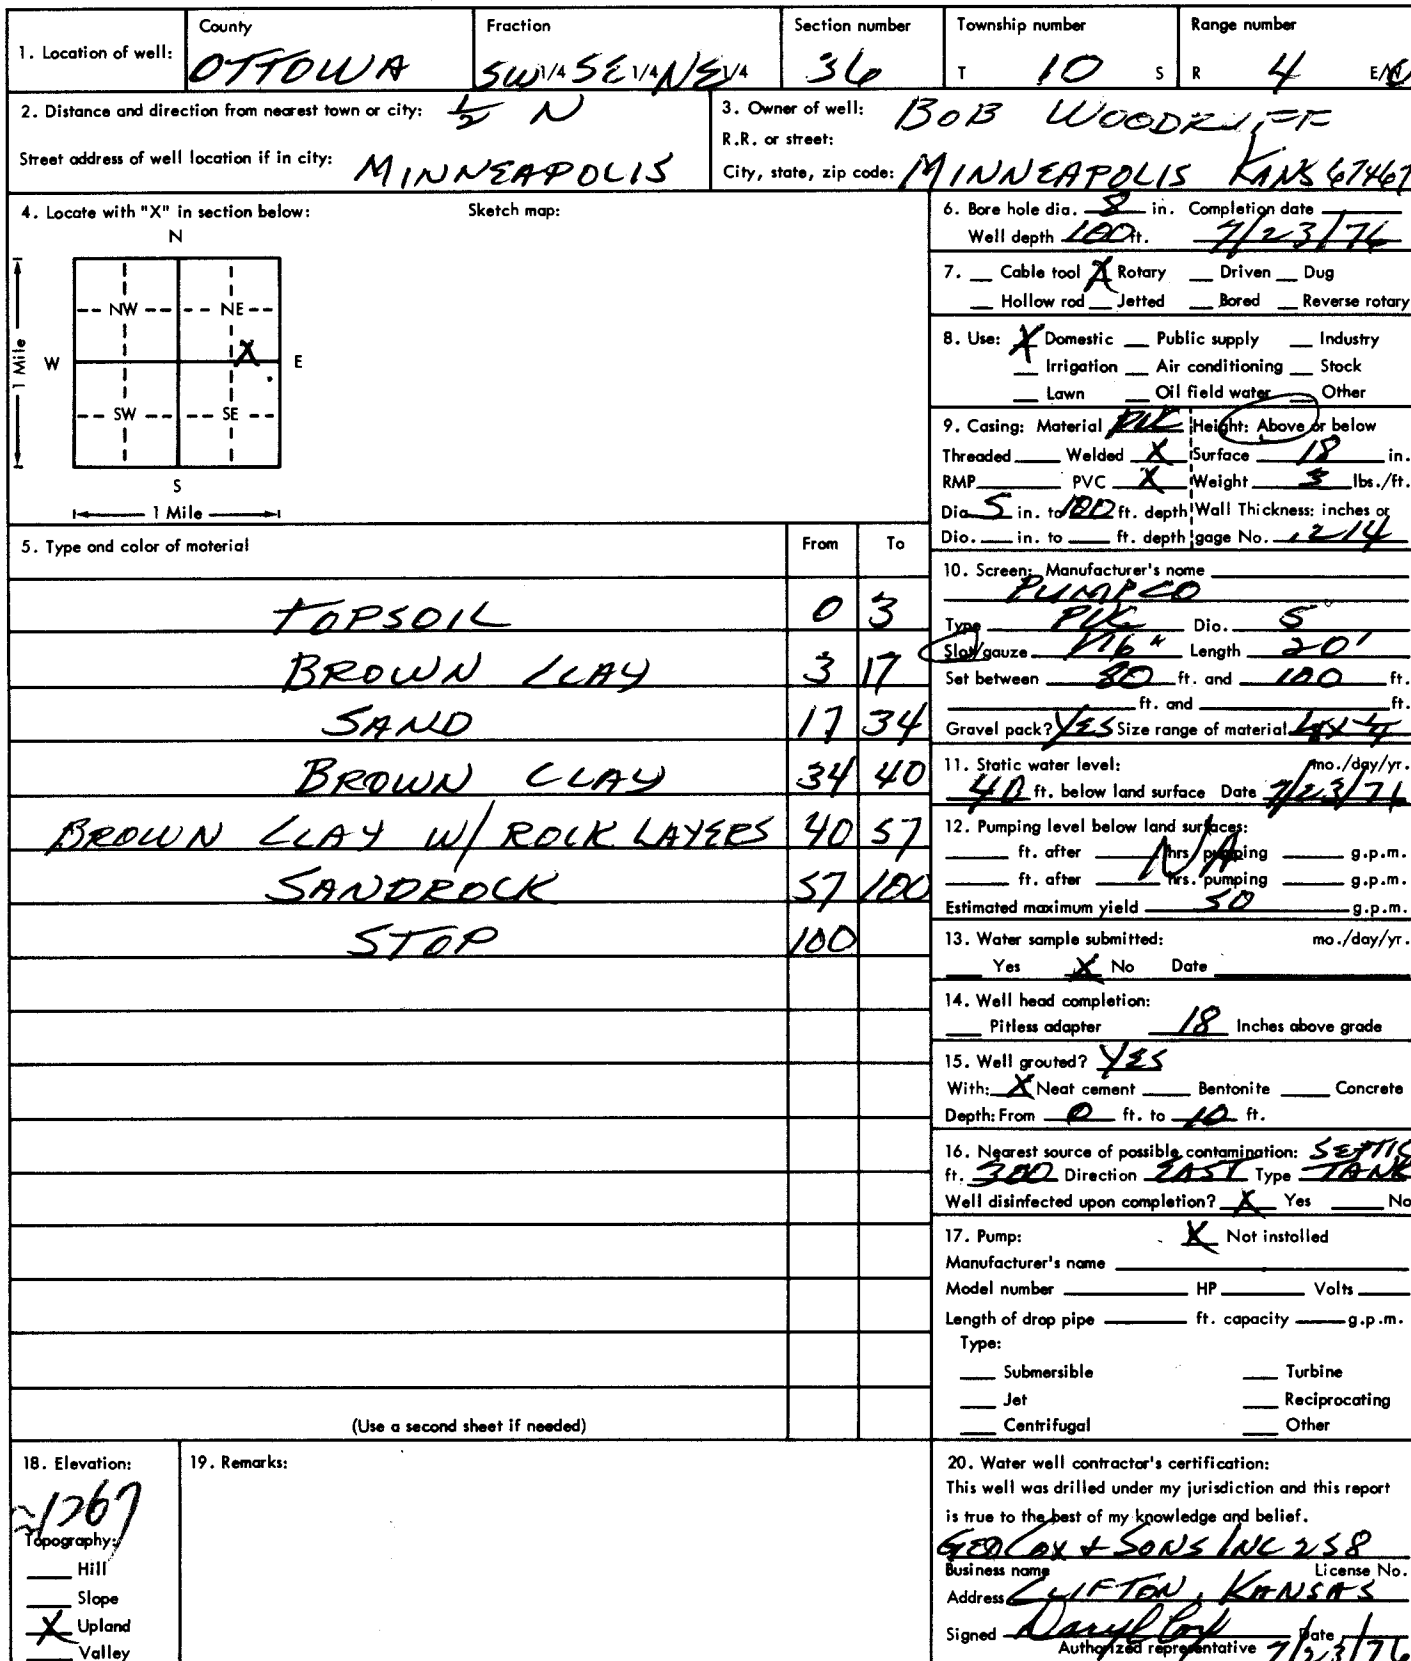 1. Location of well:
County
OTTOWA
Fraction
SW 1/4 SE 1/4 NE 1/4
Section number
36
Township number
T 10 S
Range number
R 4 E/W
2. Distance and direction from nearest town or city: 1/2 N
Street address of well location if in city: MINNEAPOLIS
3. Owner of well: BOB WOODRUFF
R.R. or street:
City, state, zip code: MINNEAPOLIS KANS 67467
4. Locate with "X" in section below:
Sketch map:
N
NW NE
W X E
SW SE
S
1 Mile
1 Mile
5. Type and color of material From To
TOPSOIL 0 3
BROWN CLAY 3 17
SAND 17 34
BROWN CLAY 34 40
BROWN CLAY W/ ROCK LAYERS 40 57
SANDROCK 57 100
STOP 100
(Use a second sheet if needed)
6. Bore hole dia. 8 in. Completion date
Well depth 100 ft. 7/23/76
7. Cable tool X Rotary Driven Dug
Hollow rod Jetted Bored Reverse rotary
8. Use: X Domestic Public supply Industry
Irrigation Air conditioning Stock
Lawn Oil field water Other
9. Casing: Material PVC Height: Above or below
Threaded Welded X Surface 18 in.
RMP PVC X Weight 3 lbs./ft.
Dia. 5 in. to 100 ft. depth Wall Thickness: inches or
Dia. in. to ft. depth gage No. .214
10. Screen: Manufacturer's name
PUMPCO
Type PVC Dia. 5"
Slot/gauze 1/16" Length 20'
Set between 80 ft. and 100 ft.
ft. and ft.
Gravel pack? YES Size range of material
11. Static water level: mo./day/yr.
40 ft. below land surface Date 7/23/76
12. Pumping level below land surfaces:
ft. after hrs. pumping g.p.m.
NA
ft. after hrs. pumping g.p.m.
Estimated maximum yield 50 g.p.m.
13. Water sample submitted: mo./day/yr.
Yes X No Date
14. Well head completion:
Pitless adapter 18 Inches above grade
15. Well grouted? YES
With: X Neat cement Bentonite Concrete
Depth: From 0 ft. to 10 ft.
16. Nearest source of possible contamination: SEPTIC
ft. 300 Direction EAST Type TANK
Well disinfected upon completion? X Yes No
17. Pump: X Not installed
Manufacturer's name
Model number HP Volts
Length of drop pipe ft. capacity g.p.m.
Type:
Submersible Turbine
Jet Reciprocating
Centrifugal Other
18. Elevation:
≈1267
Topography:
Hill
Slope
X Upland
Valley
19. Remarks:
20. Water well contractor's certification:
This well was drilled under my jurisdiction and this report
is true to the best of my knowledge and belief.
GEO COX + SONS INC 258
Business name License No.
Address CLIFTON, KANSAS
Signed Daryl Cox Date 7/23/76
Authorized representative